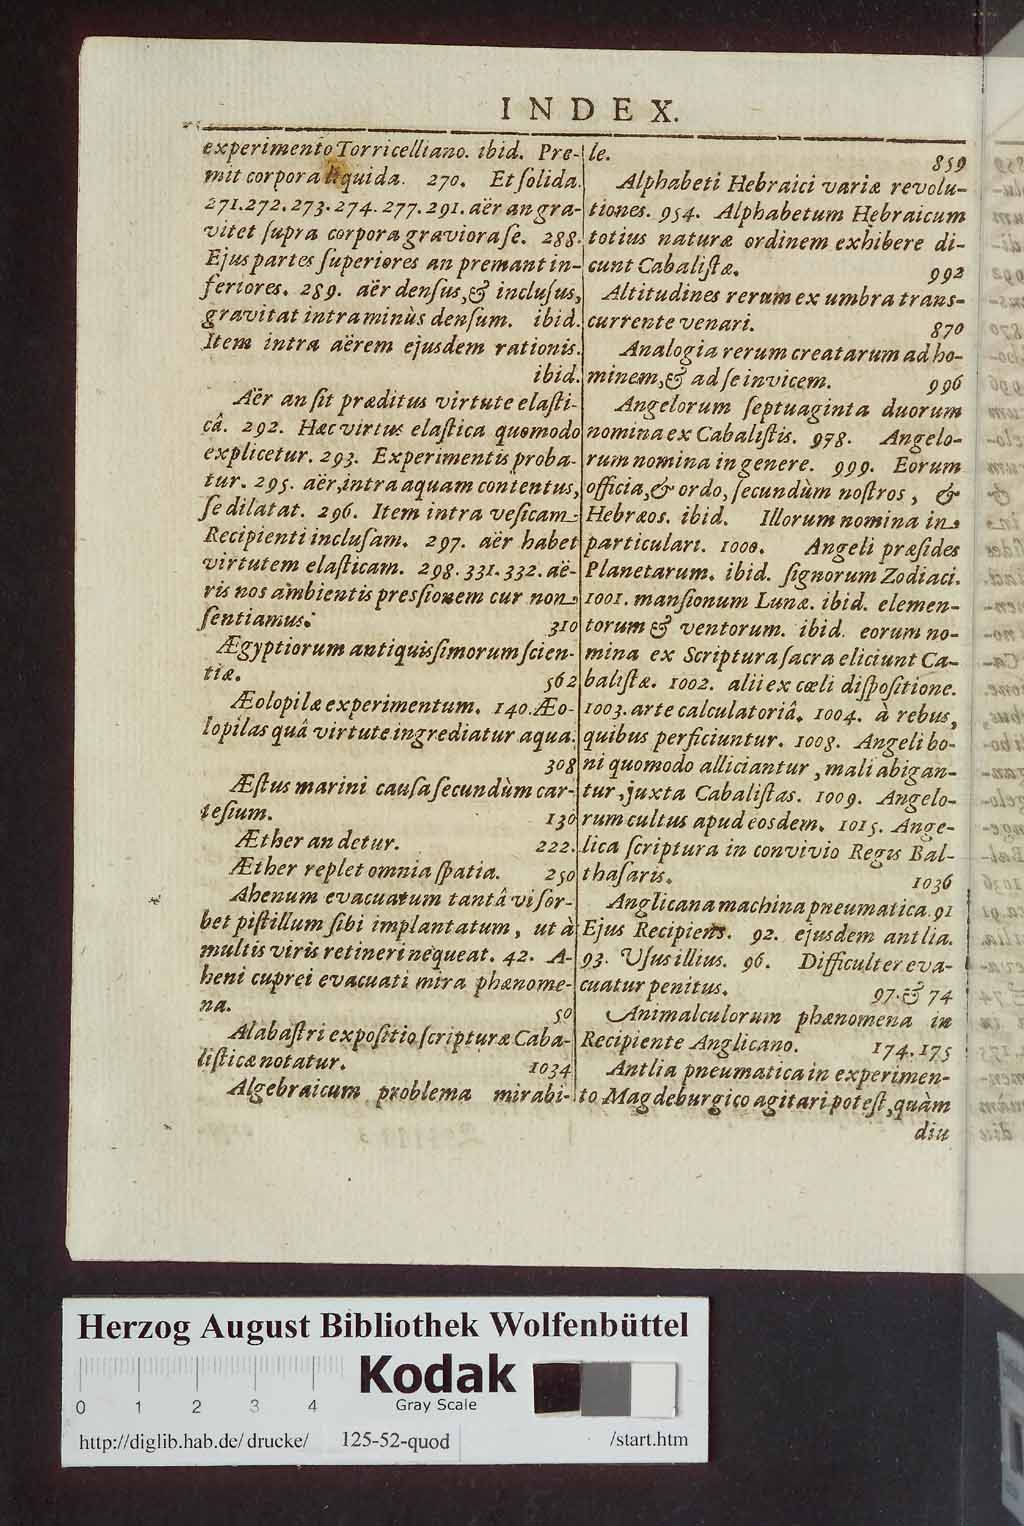 INDEX.
experimento Torricelliano. ibid. Pre-
mit corpora liquida. 270. Et ſolida.
271.272.273.274.277.291. aër an gra-
vitet ſupra corpora graviora ſe. 288.
Ejus partes ſuperiores an premant in-
feriores. 289. aër denſus, & incluſus,
gravitat intra minùs denſum. ibid.
Item intra aërem ejusdem rationis.
ibid.
Aër an ſit præditus virtute elaſti-
câ. 292. Hæc virtus elaſtica quomodo
explicetur. 293. Experimentis proba-
tur. 295. aër, intra aquam contentus,
ſe dilatat. 296. Item intra veſicam
Recipienti incluſam. 297. aër habet
virtutem elaſticam. 298.331.332. aë-
ris nos ambientis presſionem cur non
ſentiamus. 310
Ægyptiorum antiquisſimorum ſcien-
tiæ. 562
Æolopilæ experimentum. 140. Æo-
lopilas quâ virtute ingrediatur aqua.
308
Æſtus marini cauſa ſecundùm car-
teſium. 130
Æther an detur. 222.
Æther replet omnia ſpatia. 250
Ahenum evacuatum tantâ vi ſor-
bet piſtillum ſibi implantatum, ut à
multis viris retineri nequeat. 42. A-
heni cuprei evacuati mira phænome-
na. 50
Alabaſtri expoſitio ſcripturæ Caba-
liſticæ notatur. 1034
Algebraicum problema mirabi-
le. 859
Alphabeti Hebraici variæ revolu-
tiones. 954. Alphabetum Hebraicum
totius naturæ ordinem exhibere di-
cunt Cabaliſtæ. 992
Altitudines rerum ex umbra trans-
currente venari. 870
Analogia rerum creatarum ad ho-
minem, & ad ſe invicem. 996
Angelorum ſeptuaginta duorum
nomina ex Cabaliſtis. 978. Angelo-
rum nomina in genere. 999. Eorum
officia, & ordo, ſecundùm noſtros, &
Hebræos. ibid. Illorum nomina in
particulari. 1000. Angeli præſides
Planetarum. ibid. ſignorum Zodiaci.
1001. manſionum Lunæ. ibid. elemen-
torum & ventorum. ibid. eorum no-
mina ex Scriptura ſacra eliciunt Ca-
baliſtæ. 1002. alii ex cœli diſpoſitione.
1003. arte calculatoriâ. 1004. à rebus,
quibus perficiuntur. 1008. Angeli bo-
ni quomodo alliciantur, mali abigan-
tur, juxta Cabaliſtas. 1009. Angelo-
rum cultus apud eosdem. 1015. Ange-
lica ſcriptura in convivio Regis Bal-
thaſaris. 1036
Anglicana machina pneumatica. 91
Ejus Recipiens. 92. ejusdem antlia.
93. Uſus illius. 96. Difficulter eva-
cuatur penitus. 97. & 74
Animalculorum phænomena in
Recipiente Anglicano. 174.175
Antlia pneumatica in experimen-
to Magdeburgico agitari poteſt, quàm
diu
Herzog August Bibliothek Wolfenbüttel
Kodak
Gray Scale
0 1 2 3 4
http://diglib.hab.de/drucke/ 125-52-quod /start.htm